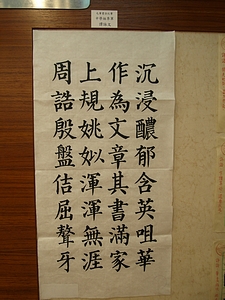 沉浸醲郁含英咀華
作為文章其書滿家
上規姚姒渾渾無涯
周誥殷盤佶屈聱牙